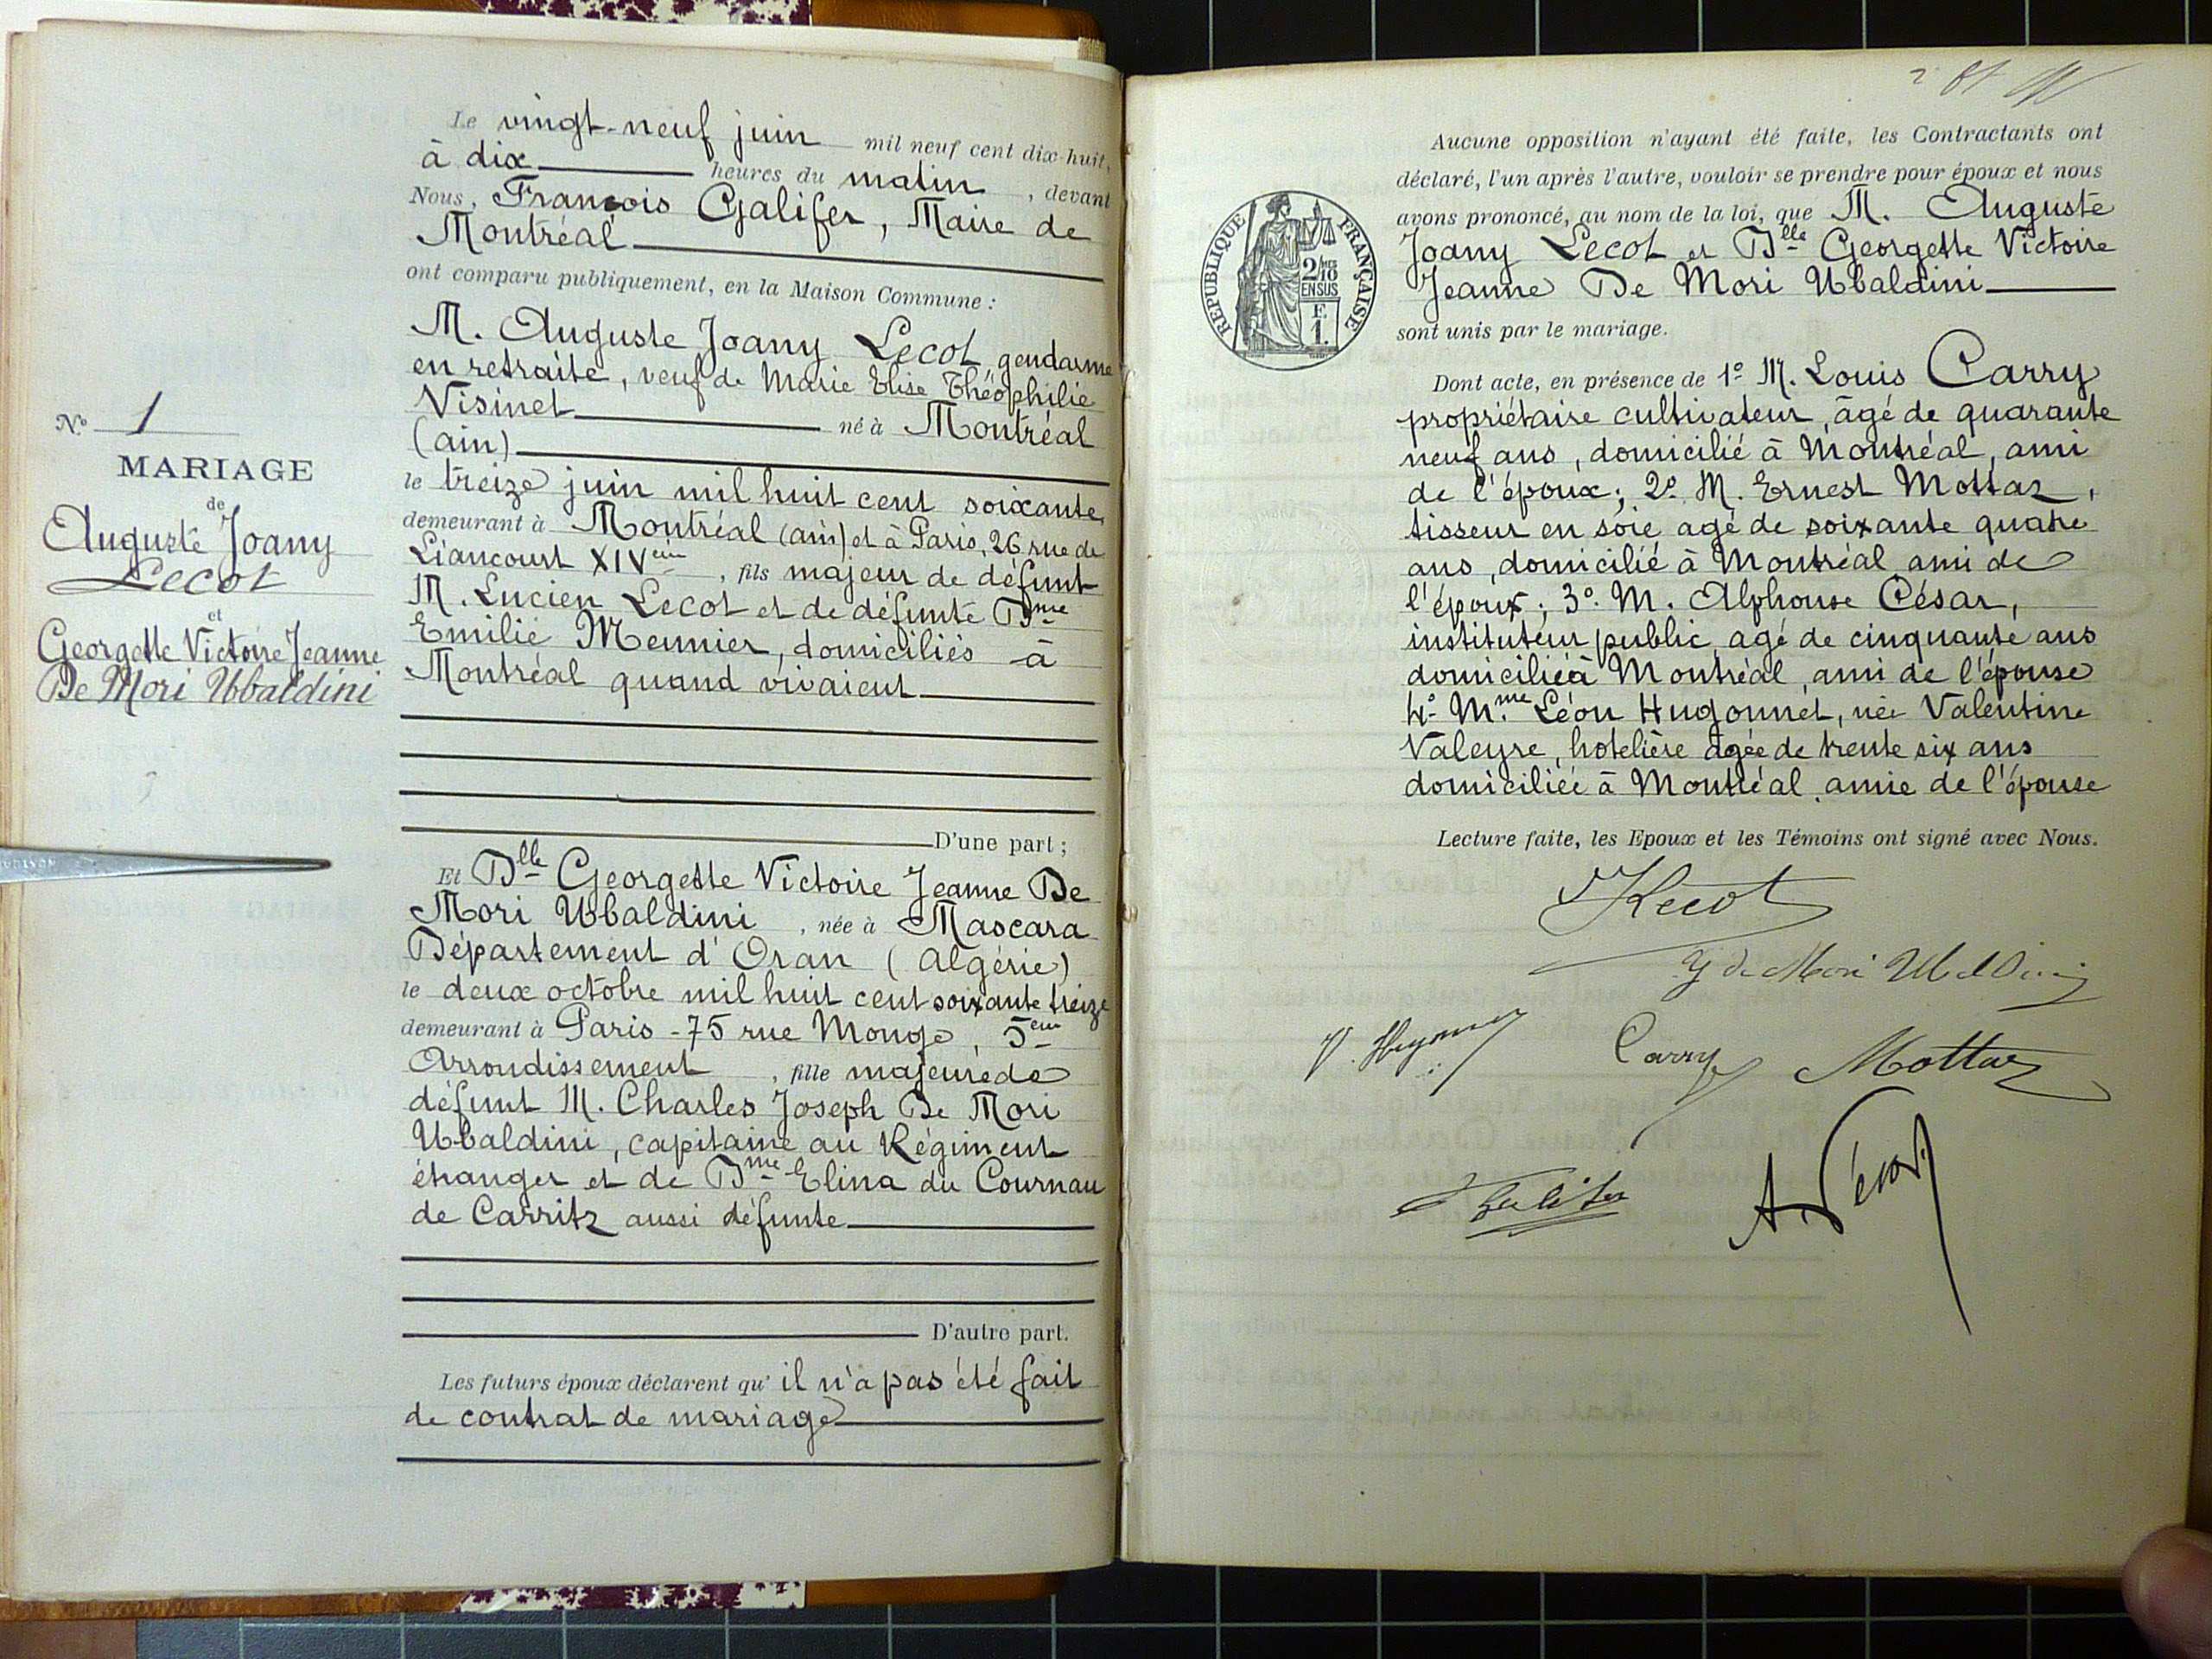 Le vingt-neuf juin mil neuf cent dix-huit,
à dix heures du matin, devant
Nous, François Galifer, Maire de
Montréal
ont comparu publiquement, en la Maison Commune :
M. Auguste Joany Lecot, gendarme
en retraite, veuf de Marie Elise Théophilie
Visinet né à Montréal
(ain)
le treize juin mil huit cent soixante,
demeurant à Montréal (ain) et à Paris, 26 rue de
Liancourt XIVème, fils majeur de défunt
M. Lucien Lecot et de défunte Dme
Emilie Meunier, domiciliés à
Montréal quand vivaient
D'une part ;
No 1
MARIAGE
de
Auguste Joany
Lecot
et
Georgette Victoire Jeanne
De Mori Ubaldini
Et Dlle Georgette Victoire Jeanne De
Mori Ubaldini, née à Mascara
Département d'Oran (Algérie)
le deux octobre mil huit cent soixante treize
demeurant à Paris - 75 rue Monge, 5ème
Arrondissement, fille majeure de
défunt M. Charles Joseph De Mori
Ubaldini, capitaine au Régiment
étranger et de Dme Elina du Cournau
de Carritz aussi défunte
D'autre part.
Les futurs époux déclarent qu'il n'a pas été fait
de contrat de mariage
Aucune opposition n'ayant été faite, les Contractants ont
déclaré, l'un après l'autre, vouloir se prendre pour époux et nous
avons prononcé, au nom de la loi, que M. Auguste
Joany Lecot et Dlle Georgette Victoire
Jeanne De Mori Ubaldini
sont unis par le mariage.
RÉPUBLIQUE FRANÇAISE
2/10
EN SUS
F.
1.
Dont acte, en présence de 1º M. Louis Carry
propriétaire cultivateur, âgé de quarante
neuf ans, domicilié à Montréal, ami
de l'époux ; 2º M. Ernest Mottaz,
tisseur en soie agé de soixante quatre
ans, domicilié à Montréal ami de
l'époux ; 3º. M. Alphonse César,
instituteur public, agé de cinquante ans
domicilié à Montréal, ami de l'épouse
4º Mme Léon Hugonnet, née Valentine
Valeyre, hotelière agée de trente six ans
domiciliée à Montréal, amie de l'épouse
Lecture faite, les Epoux et les Témoins ont signé avec Nous.
Lecot
G de Mori Ubaldini
V. Hugonnet
Carry
Mottaz
Galifer
A. César